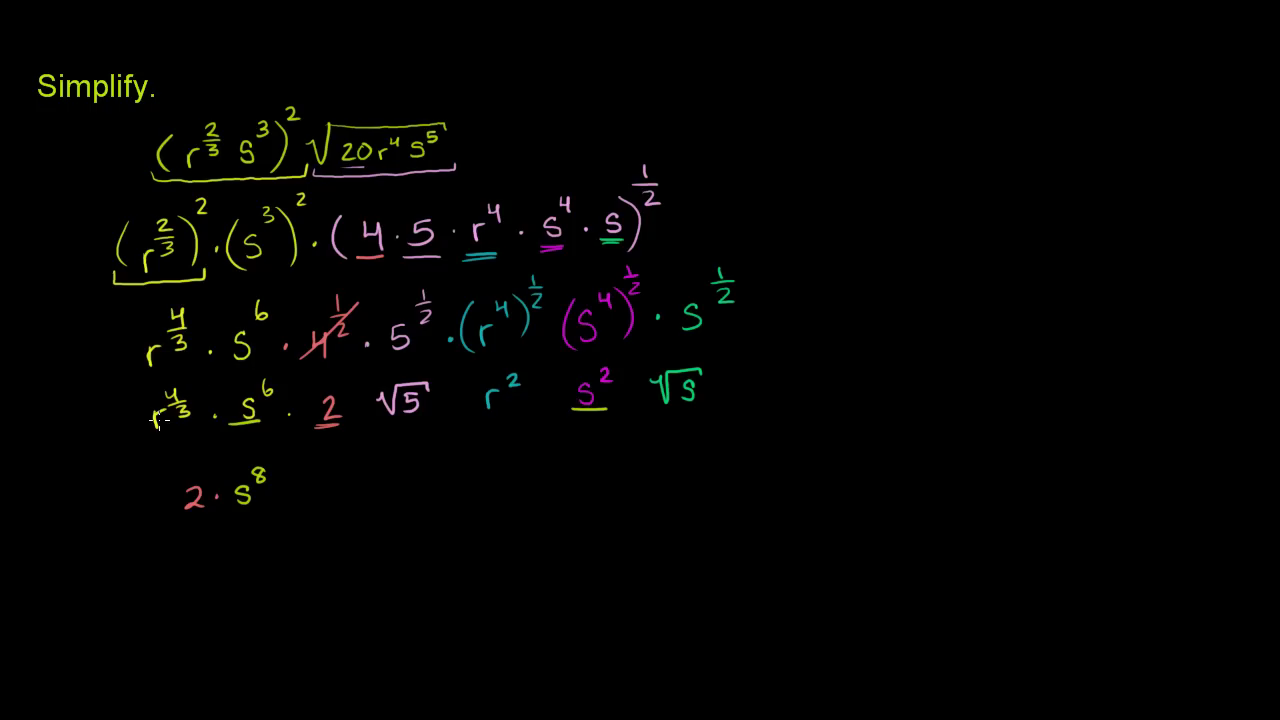 Simplify.
(r^(2/3) s^3)^2 √(20r^4 s^5)
(r^(2/3))^2 · (s^3)^2 · (4 · 5 · r^4 · s^4 · s)^(1/2)
r^(4/3) · s^6 · 4^(1/2) · 5^(1/2) · (r^4)^(1/2) (s^4)^(1/2) · s^(1/2)
r^(4/3) · s^6 · 2 √5 r^2 s^2 √s
2 · s^8